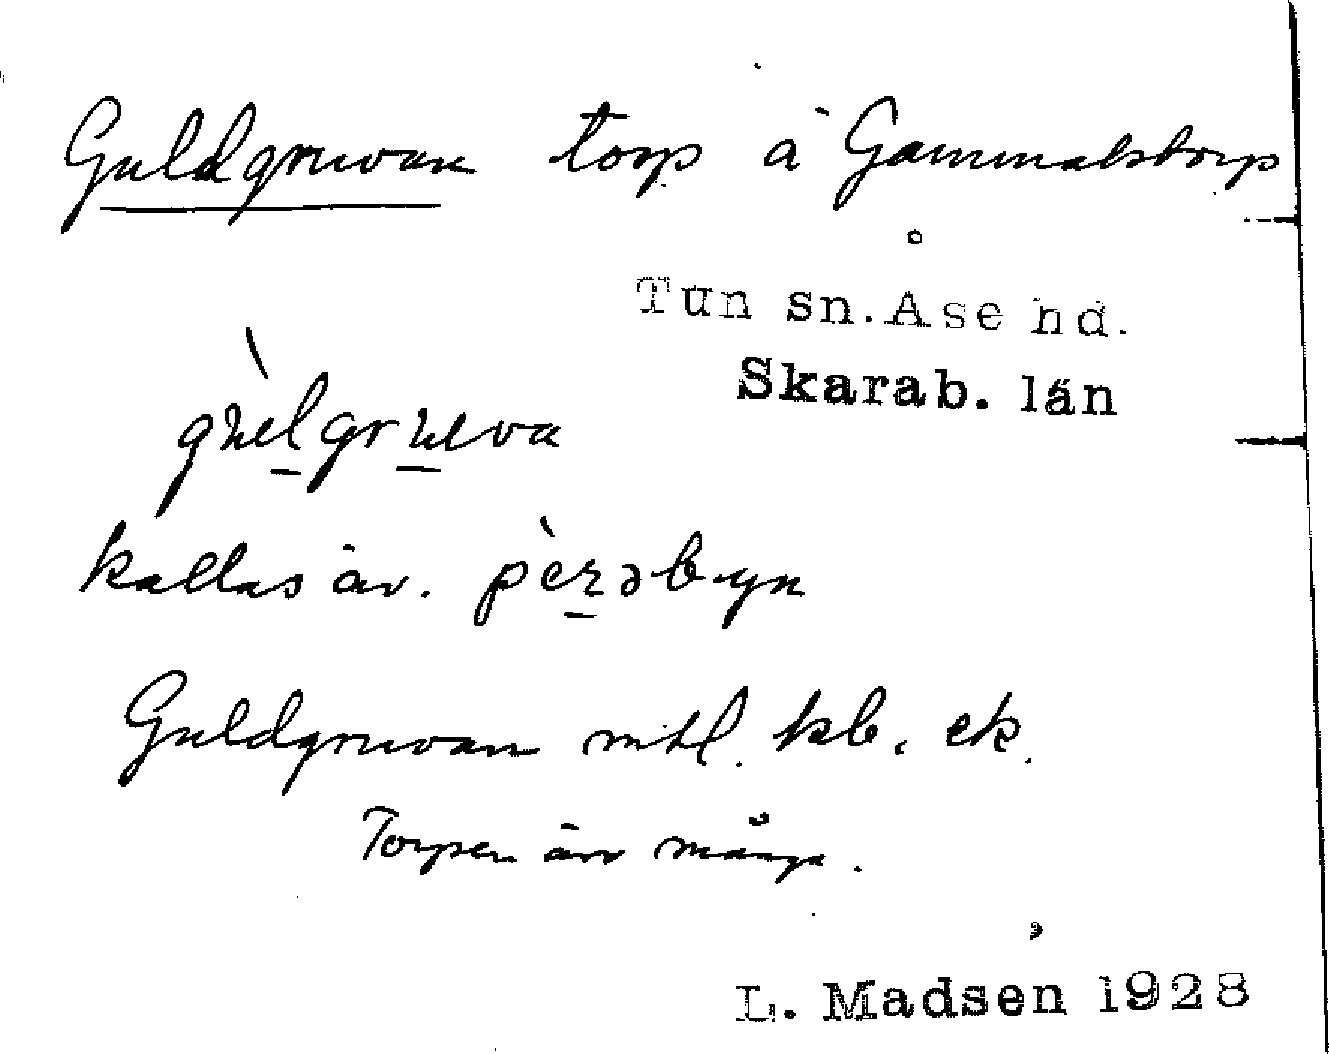 Guldgruvan torp å Gammalstorp
Tun sn. Åse hd.
Skarab. län
kallas äv. pèrəbyn
Guldgruvan mtl. kb. ek.
Torpen äro många.
L. Madsen 1928